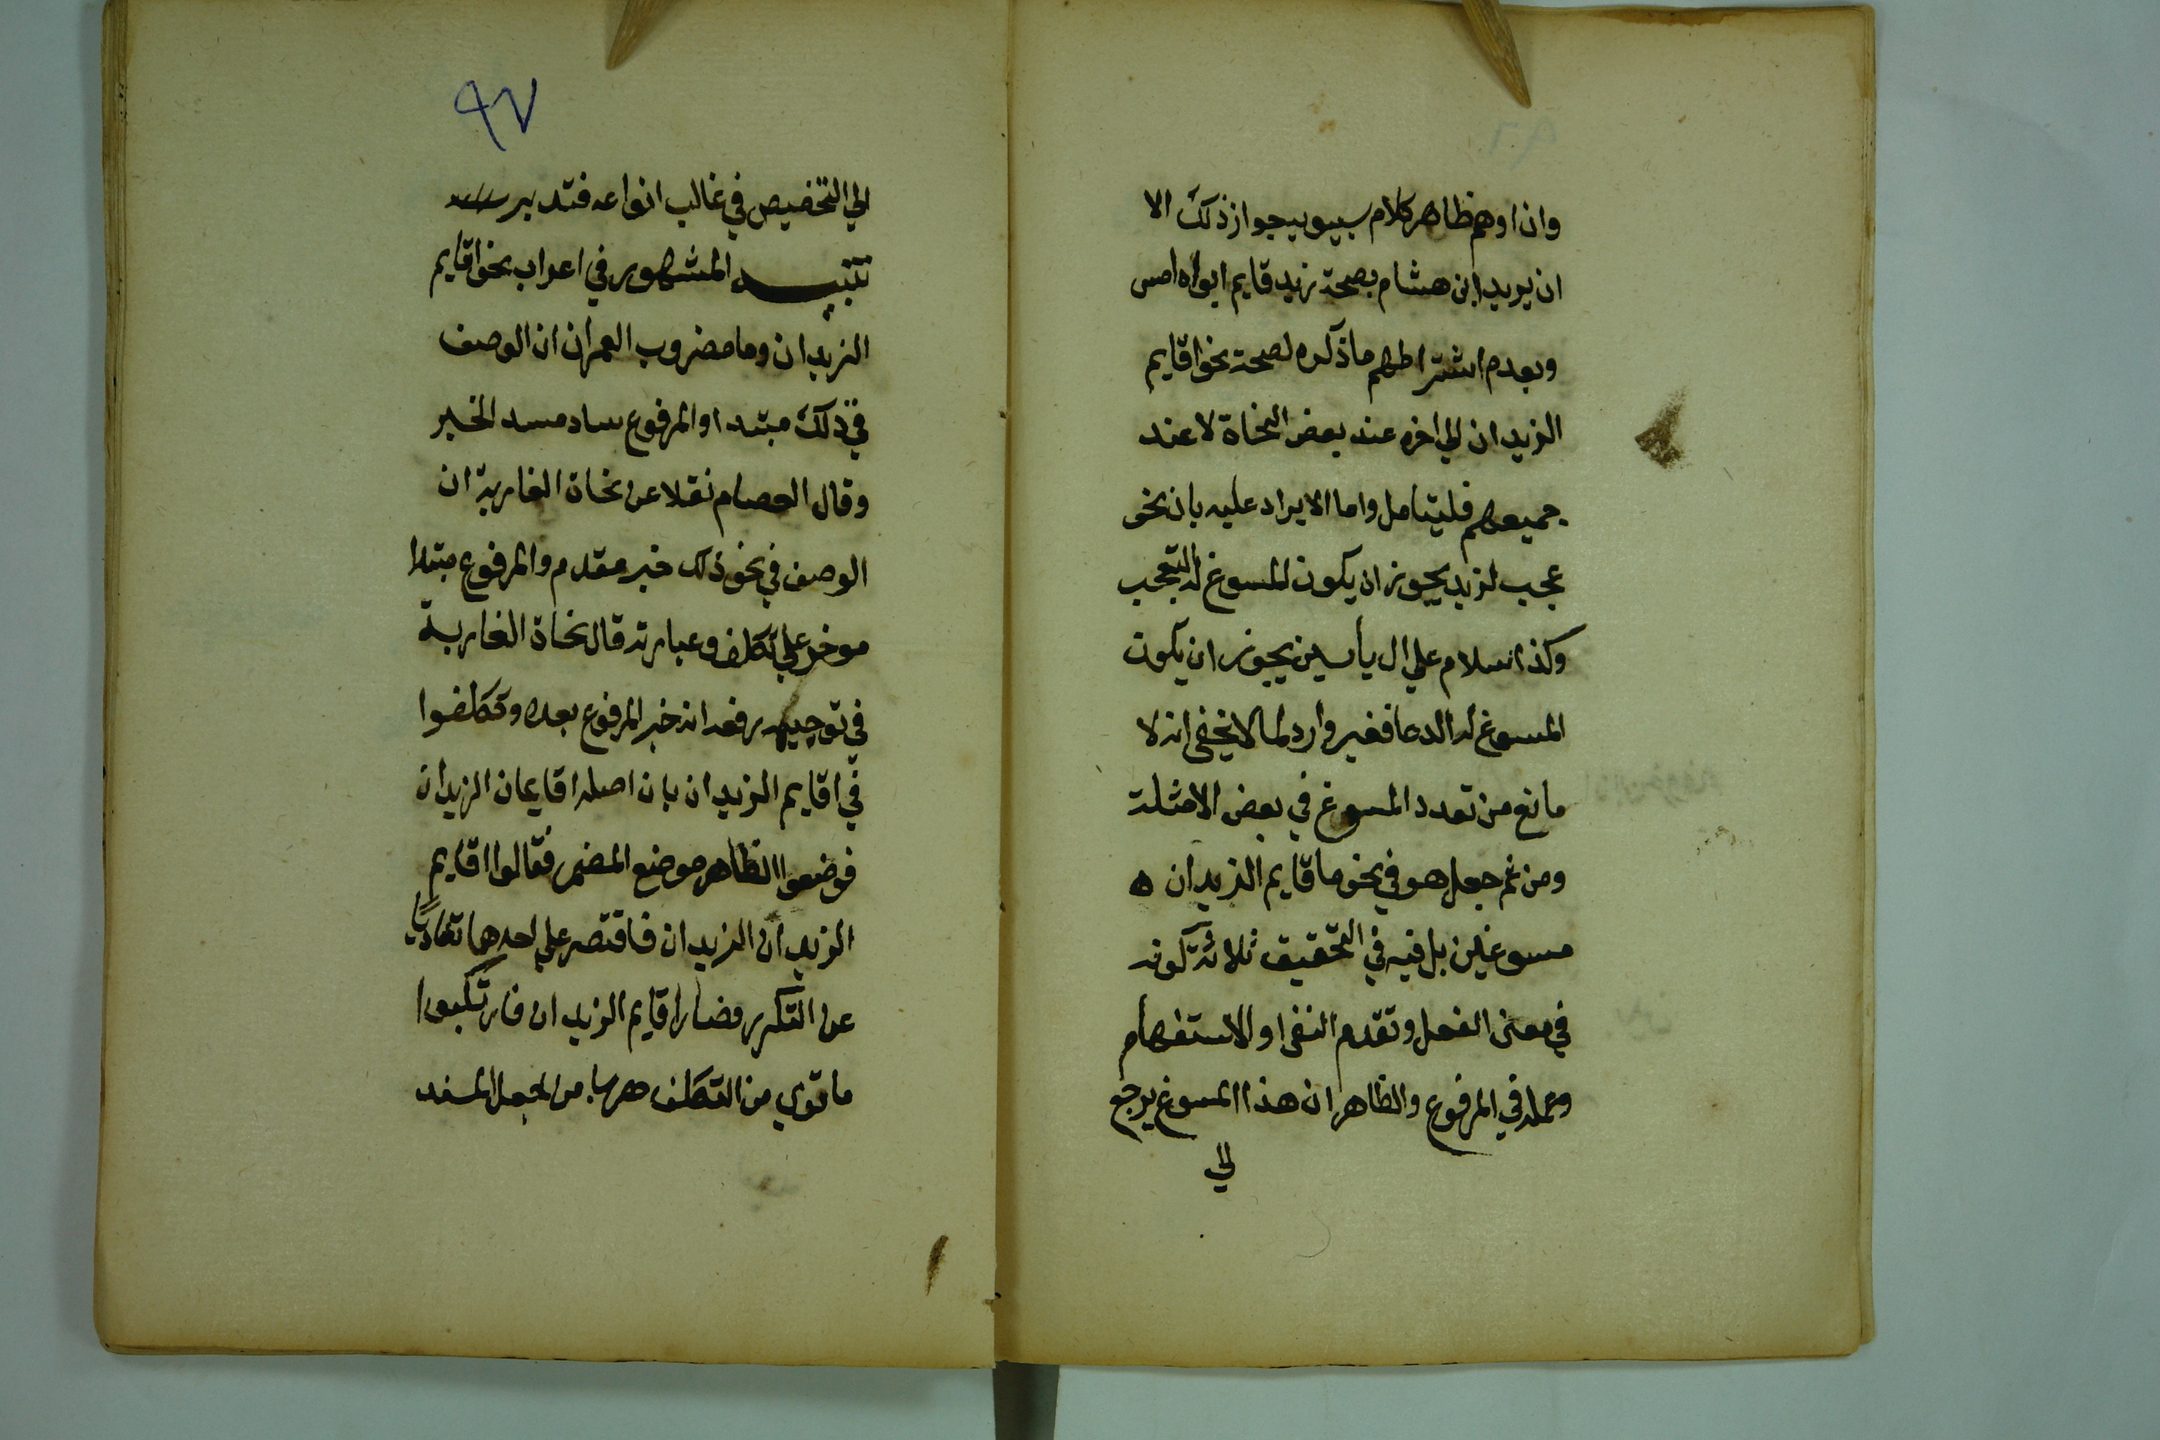 وان اوهم ظاهر كلام سيبويه جواز ذلك الا
ان يريد ابن هشام بصحة زيد قايم ابواه امس
وبعدم اشتراطهم ما ذكره لصحة نحو اقايم
الزيدان الي اخره عند بعض النحاة لا عند
جميعهم فليتامل واما الايراد عليه بان نحو
عجب لزيد يجوز ان يكون المسوغ له التعجب
وكذا سلام علي ال ياسين يجوز ان يكون
المسوغ له الدعا فغير وارد لما لا يخفي انه لا
مانع من تعدد المسوغ في بعض الامثلة
ومن ثم جعل هو في نحو ما قايم الزيدان ه
مسوغين بل فيه في التحقيق ثلاثة كونه
في معنى الفعل وتقدم النفي او الاستفهام
وعمله في المرفوع والظاهر ان هذا المسوغ يرجع
الي
٩٧
الي التخصيص في غالب انواعه فتدبر
تنبيه المشهور في اعراب نحو اقايم
الزيدان وما مضروب العمران ان الوصف
في ذلك مبتدا والمرفوع ساد مسد الخبر
وقال العصام نقلا عن نحاة المغاربة ان
الوصف في نحو ذلك خبر مقدم والمرفوع مبتدا
موخر علي تكلف وعبارته قال نحاة المغاربة
في توجيه رفعه انه خبر المرفوع بعده وتكلفوا
في اقايم الزيدان بان اصله اقايمان الزيدان
فوضعوا الظاهر موضع المضمر فقالوا اقايم
الزيدان الزيدان فاقتصر علي احدهما تفاديا
عن التكرير فصار اقايم الزيدان فارتكبوا
ما تري من التكلف هربا من الجعل المسند